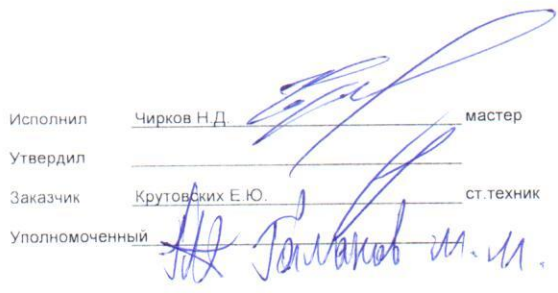 Исполнил Чирков Н.Д. мастер
Утвердил
Заказчик Крутовских Е.Ю. ст.техник
Уполномоченный